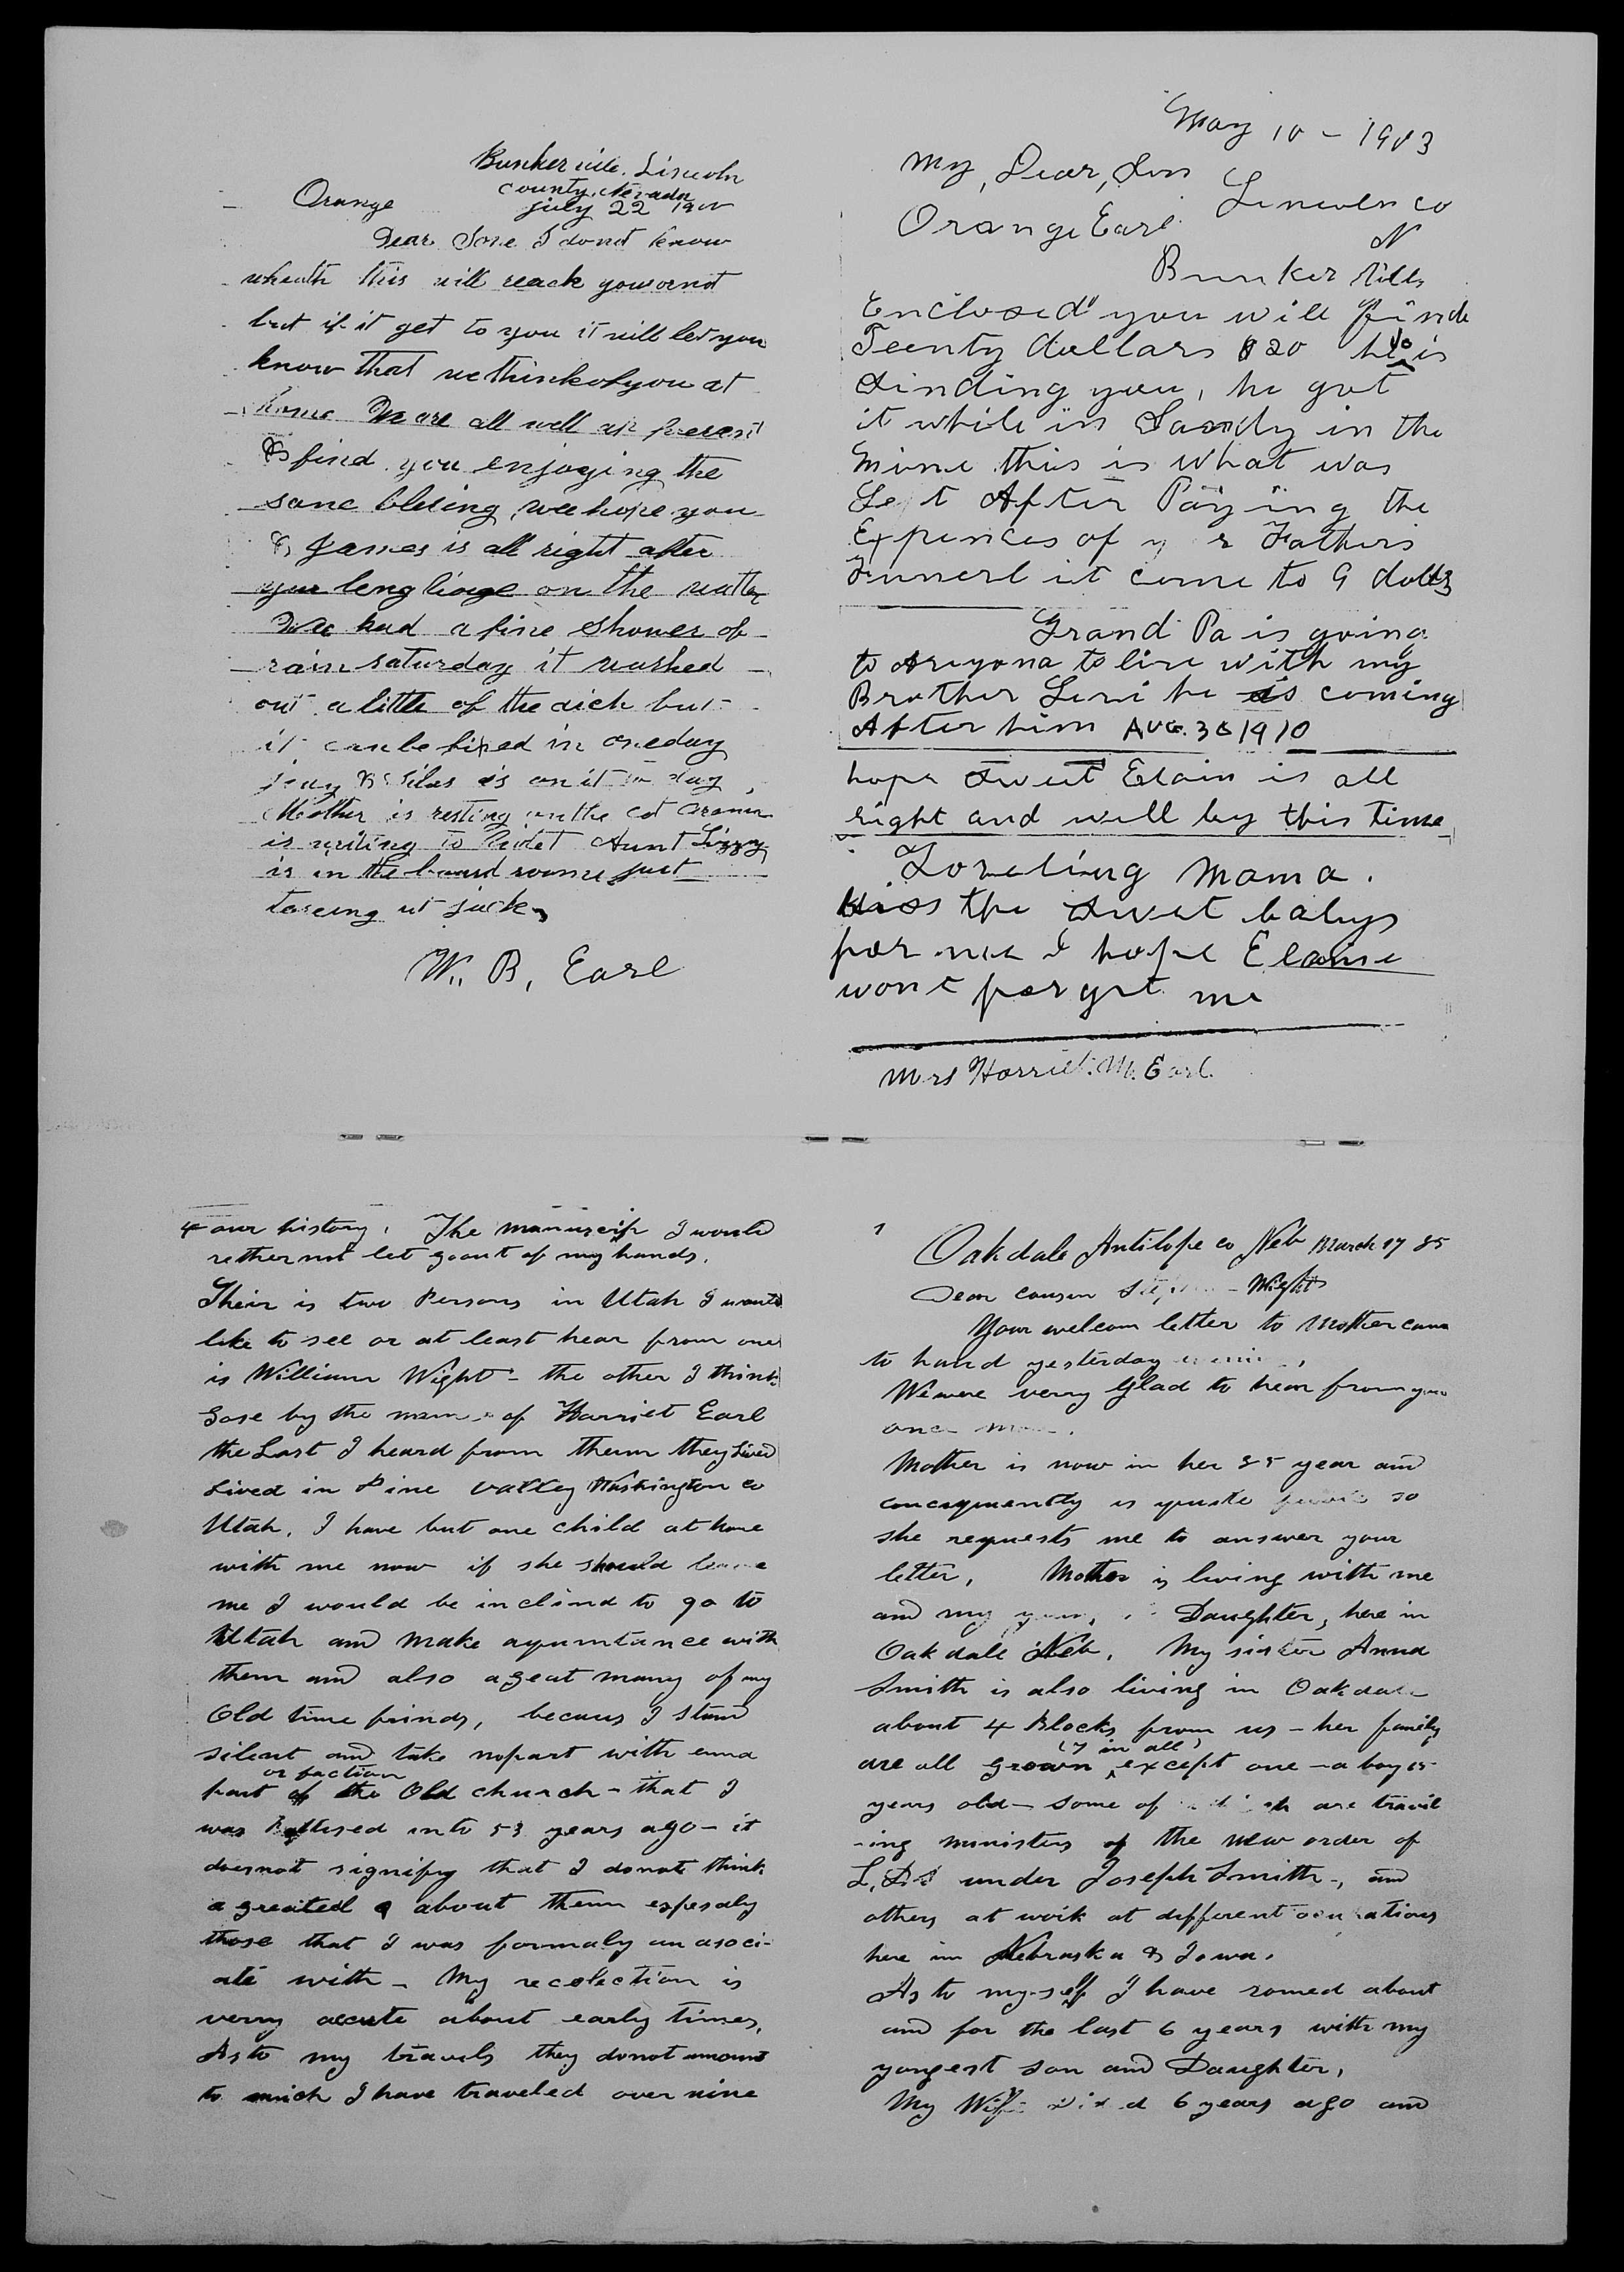 Bunkerville. Lincoln
county, Nevada
Orange july 22
Dear Sone I donot know
wheath this will reach you ornot
but if it get to you it will let you
know that we think of you at
home We are all well at present
& find you enjoying the
same blesing, wee hope you
& James is all right after
your long on the
Wee had a fine shower of
rain saturday it washed
out a little of the dich but
it can be fixed in oneday
& Silas is on it to day
Mother is resting on the cot
is writing to Aunt Lizzy
is in the board roome just
W. B. Earl
May 10 - 1903
My, Dear, Son
Lincoln co
Orange Earl.
N
Bunker
Enclosed you will finde
Teenty dollars $20 is
sinding you, he got
it while in Sandy in the
mine this is what was
Left After Paying the
Expences of Fathers
Funerl it come to 9 dolls
Grand Pa is going
to Areyona to live with my
Brother Levi he is coming
After him AUG. 3 1910
hope sweet Elain is all
right and well by this time
Loveling Mama.
Kiss the sweet babys
for me I hope Elaine
wont forget me
Mrs Harriet. M. Earl.
4 our history. The manuscip I would
rether not let go out of my hands.
Their is two Persons in Utah I would
like to see or at least hear from one
is William Wight - the other I think
Gose by the name of Harriet Earl
the Last I heard from them they Lived
Lived in Pine valley Washington co
Utah. I have but one child at home
with me now if she should leave
me I would be inclind to go to
Utah and make aquintance with
them and also a great many of my
Old time frinds, becaus I stand
silent and take nopart with enna
or faction
part of the Old church - that I
was Baptised into 53 years ago - it
doesnot signify that I donot think
a greateal about them espesaly
those that I was formaly an asoci-
ate with - My recolection is
verry accute about early times,
As to my travels they donot amount
to mich I have traveled over nine
1
Oakdale Antilope co Neb March 17 85
Dear cousen - Wight
Your welcom letter to Mother came
to hand yesterday
We were verry Glad to hear from you
once
Mother is now in her 85 year and
concequently is quite so
she requests me to answer your
letter, Mother is living with me
and my Daughter, here in
Oakdale Neb. My sister Anna
Smith is also living in Oakdale
about 4 Blocks from us - her family
(7 in all)
are all grown except one - a boy 15
years old - some of are travil
-ing ministers of the new order of
L.D.S under Joseph Smith -, and
others at work at different
here in Nebraska & Iowa.
As to my-self I have romed about
and for the last 6 years with my
yongest son and Daughter,
My Wife Died 6 years ago and